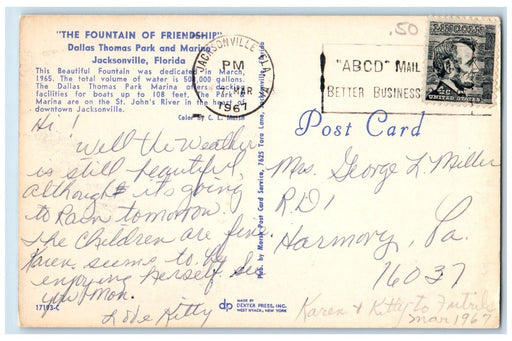 "THE FOUNTAIN OF FRIENDSHIP"
Dallas Thomas Park and Marina
Jacksonville, Florida
This Beautiful Fountain was dedicated in March,
1965. The total volume of water is gallons.
The Dallas Thomas Park Marina offers docking
facilities for boats up to 108 feet. The Park &
Marina are on the St. John's River in the heart of
downtown Jacksonville.
Color by C. L.
.50
JACKSONVILLE, FLA.
PM
MAR
1967
"ABCD" MAIL
BETTER BUSINESS
4c
UNITED STATES
Post Card
Hi!
Well the Weather
is still beautiful,
although it's going
to Rain tomorrow.
The Children are fine.
Karen seems to be
enjoying herself. See
you Mon.
Love Kitty
Mrs. George L. Miller
R.D. 1
Harmony, Pa.
16037
Pub. by Marsh Post Card Service, 7625 Tara Lane, Jacksonville, Florida
17193-C
dp
MADE BY
DEXTER PRESS, INC.
WEST NYACK, NEW YORK
Karen & Kitty to
Mar 1967